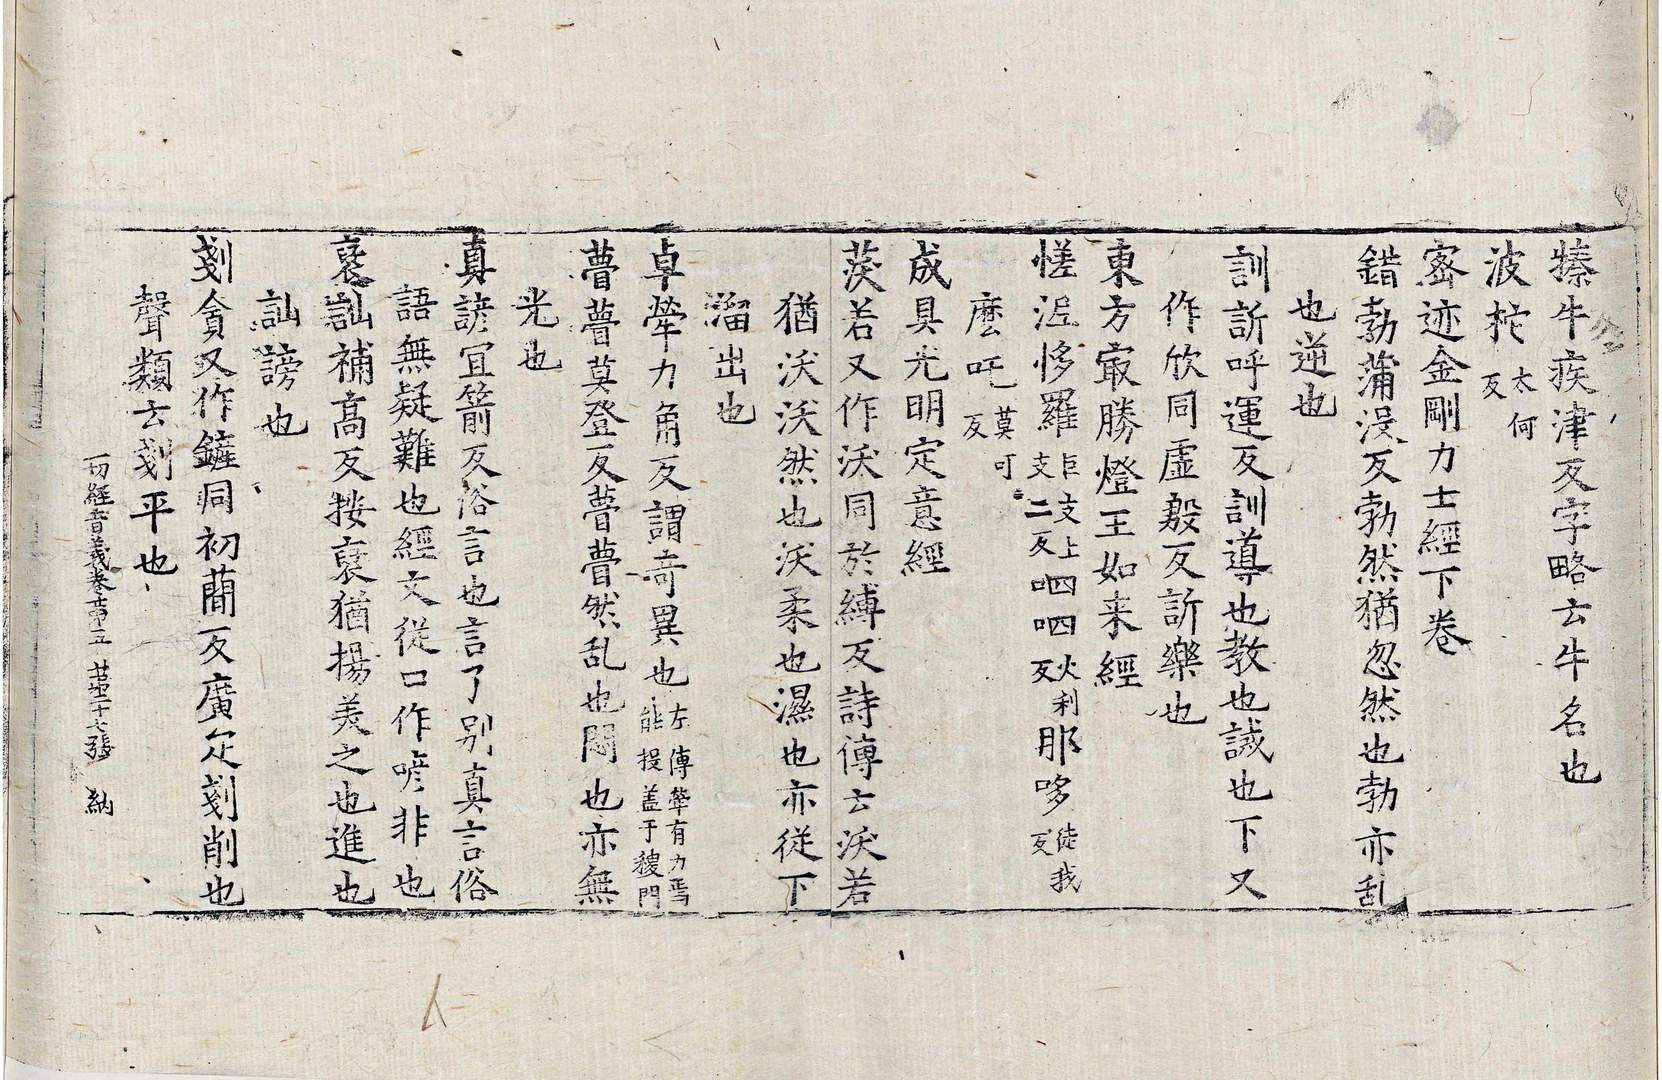 㹌牛疾津反字略云牛名也
波柁太何反
密迹金剛力士經下卷
錯勃蒲没反勃然猶忽然也勃亦乱
也逆也
訓訢呼運反訓導也教也誡也下又
作欣同虛殷反訢樂也
東方冣勝燈王如来經
㥓泥恀羅巨支上支二反呬呬火利反那哆徒我反
麼吒莫可反
成具光明定意經
茨若又作沃同於縛反詩傳云沃若
猶沃沃然也沃柔也濕也亦從下
溜出也
卓犖力角反謂竒異也左傳犖有力焉能投盖于稷門
瞢瞢莫登反瞢瞢然乱也悶也亦無
光也
真諺冝箭反俗言也言了别真言俗
語無疑難也經文從口作喭非也
裒訕補高反按裒猶揚美之也進也
訕謗也
剗貪又作鏟同初蕳反廣疋剗削也
聲類云剗平也
一切經音義卷第五 苐二十七張 納